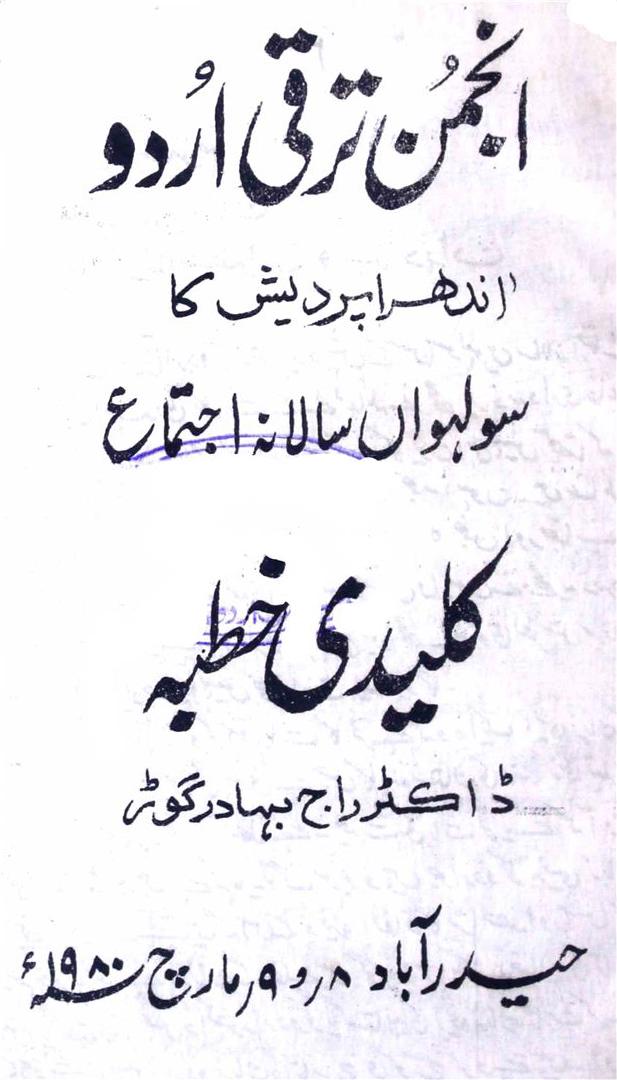 انجمن ترقی اُردو
اندھرا پردیش کا
سولہواں سالانہ اجتماع
کلیدی خطبہ
ڈاکٹر راج بہادر گوڑ
حیدرآباد ۸ر و ۹ر مارچ ۱۹۸۰ء